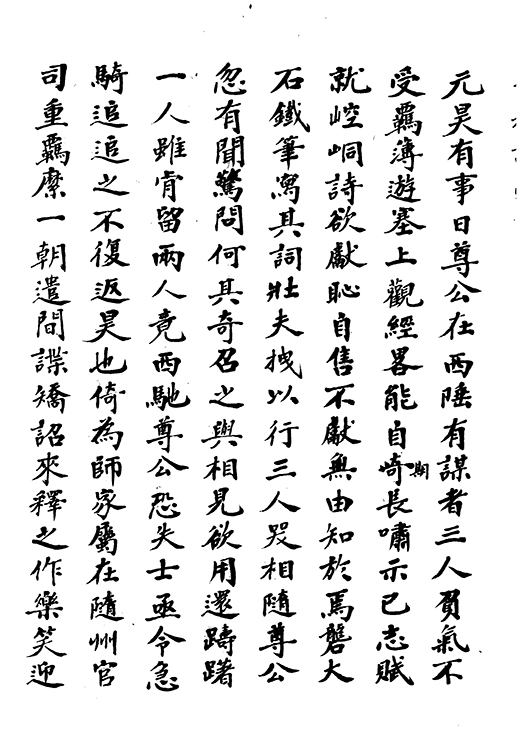 元昊有事日尊公在西陲有謀者三人負氣不
受羈薄遊塞上觀經畧能自崎期長嘯示已志賦
就崆峒詩欲獻恥自售不獻無由知於焉礱大
石鐵筆寫其詞壯夫拽以行三人哭相隨尊公
忽有聞驚問何其奇召之與相見欲用還躊躇
一人雖肯留兩人竟西馳尊公恐失士亟令急
騎追追之不復返昊也倚為師家屬在隨州官
司重羈縻一朝遣間諜矯詔來釋之作樂笑迎